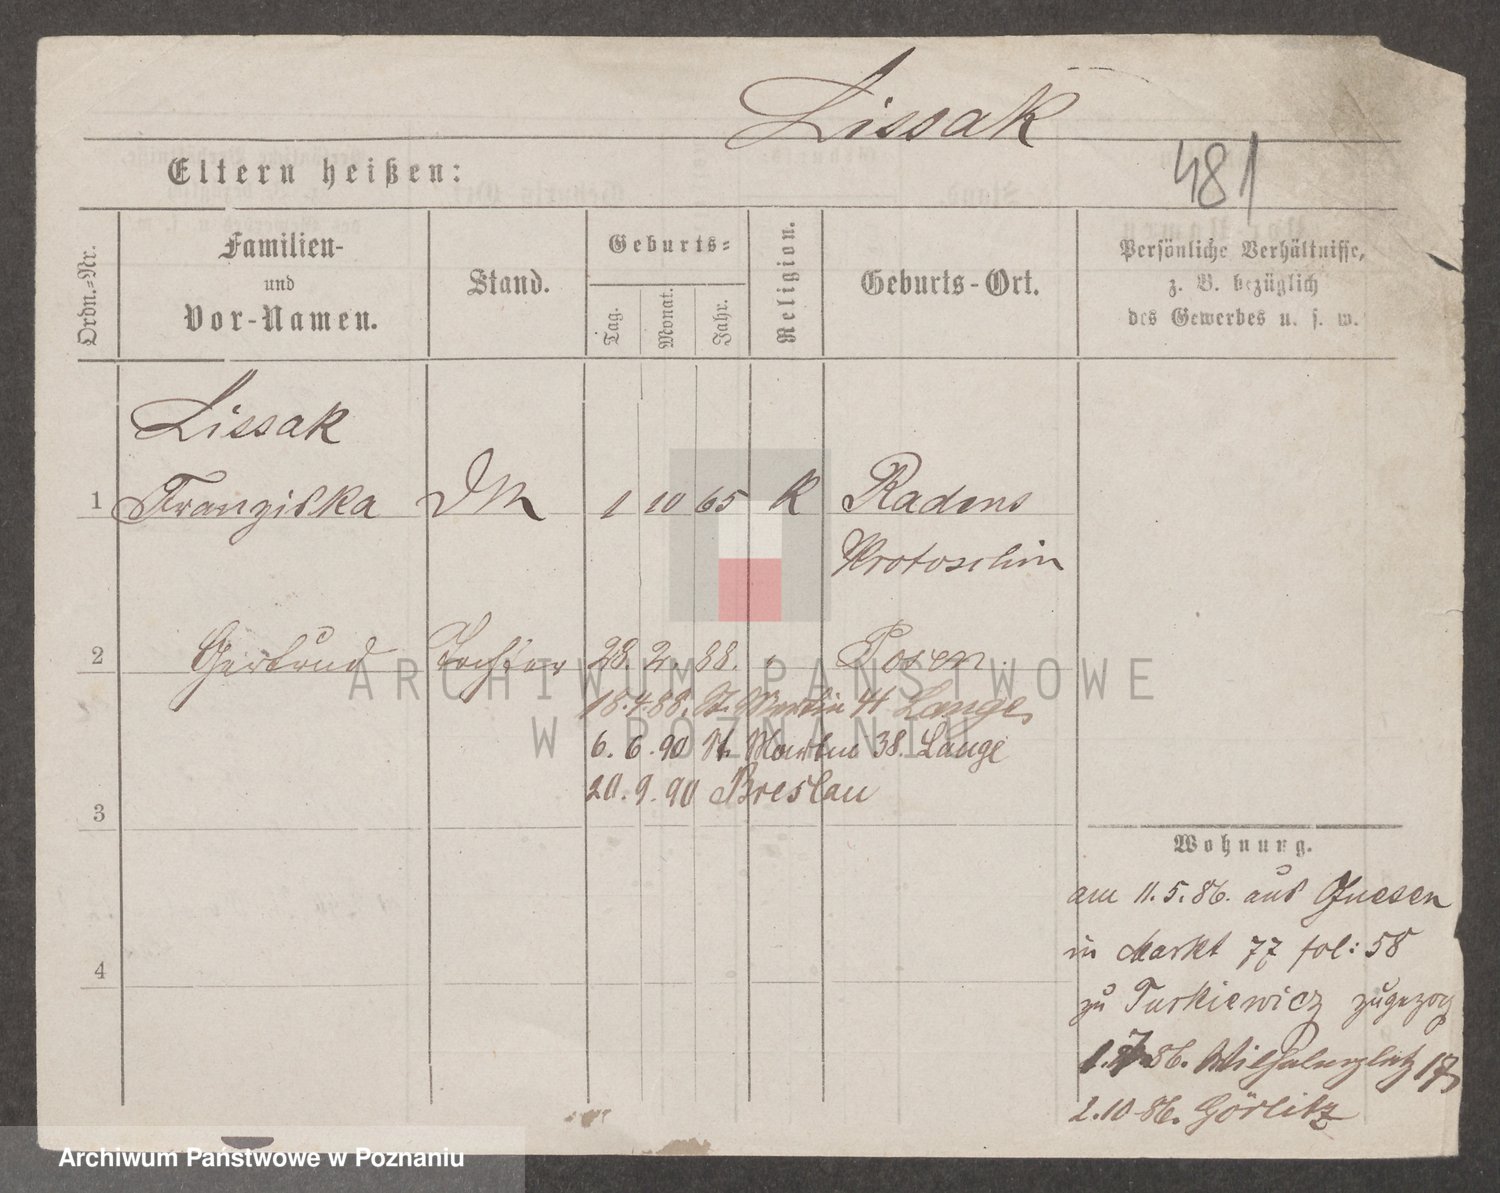 Lissak
481
Eltern heißen:
Ordn.-Nr.
Familien-
und
Vor-Namen.
Stand.
Geburts-
Tag.
Monat.
Jahr.
Religion.
Geburts-Ort.
Persönliche Verhältnisse,
z. B. bezüglich
des Gewerbes u. s. w.
Lissak
1 Franziska DM 1 10 65 K Radens
Krotoschin
2 Gertrud Tochter 28. 2. 88. Posen
18.4.88. St. Martin 41 Lange
6. 6. 90 St. Martin 38. Lange
20. 9. 90 Breslau
3
Wohnung.
am 11. 5. 86. aus Gnesen
in Markt 77 fol: 58
4
zu Turkiewicz zugezog
1. 7. 86. Wilhelmsplatz 17
2. 10 86. Görlitz
ARCHIWUM PAŃSTWOWE
W POZNANIU
Archiwum Państwowe w Poznaniu